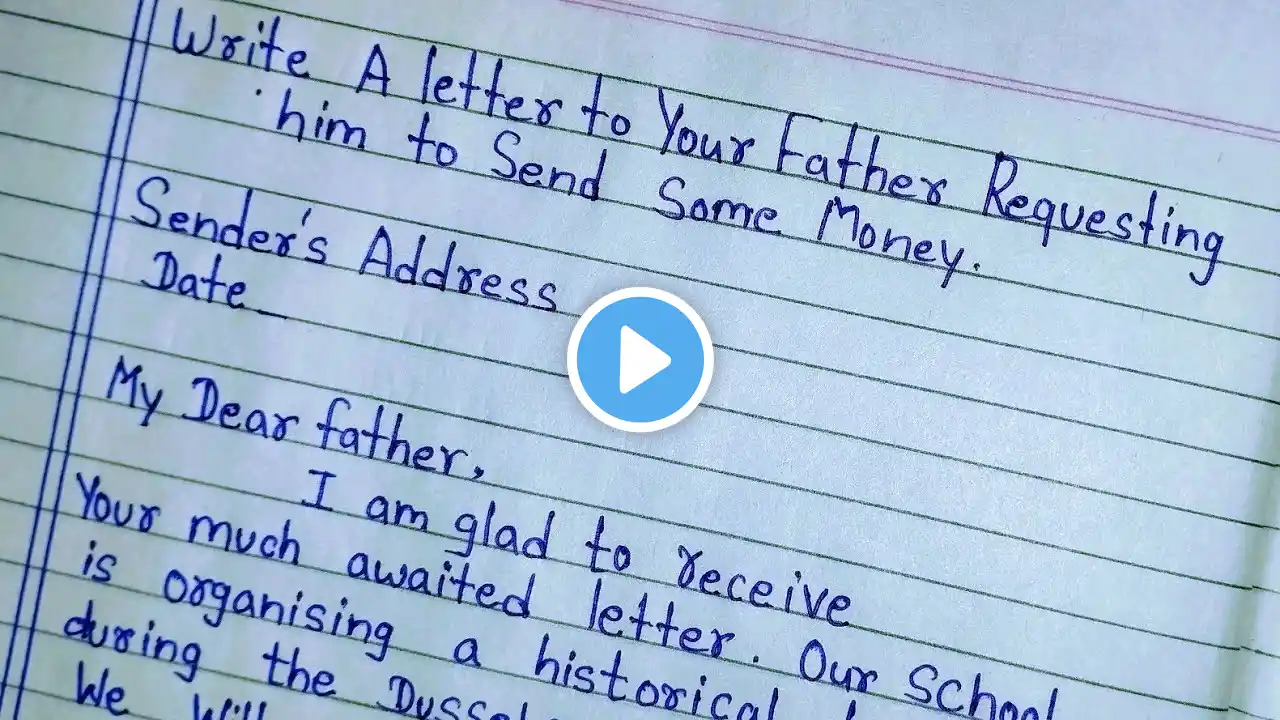 Write A letter to Your Father Requesting
him to Send Some Money.
Sender's Address
Date
My Dear father,
I am glad to receive
Your much awaited letter. Our School
is organising a historical
during the
We Will